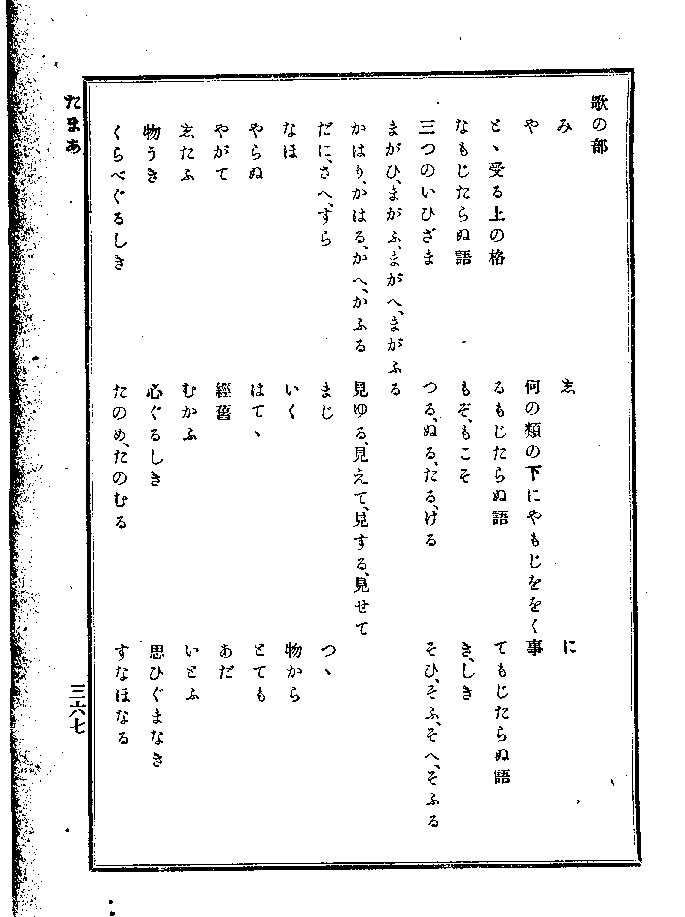 歌の部
み　志　に
や　何の類の下にやもじををく事
とゝ受る上の格　るもじたらぬ語　てもじたらぬ語
なもじたらぬ語　もぞ、もこそ　き、しき
三つのいひざま　つる、ぬる、たる、ける　そひ、そふ、そへ、そふる
まがひ、まがふ、まがへ、まがふる
かはり、かはる、かへ、かふる　見ゆる、見えて、見する、見せて
だに、さへ、すら　まじ　つゝ
なほ　いく　物から
やらぬ　はてゝ　とても
やがて　經舊　あだ
志たふ　むかふ　いとふ
物うき　心ぐるしき　思ひぐまなき
くらべぐるしき　たのめ、たのむる　すなほなる
たまあ
三六七